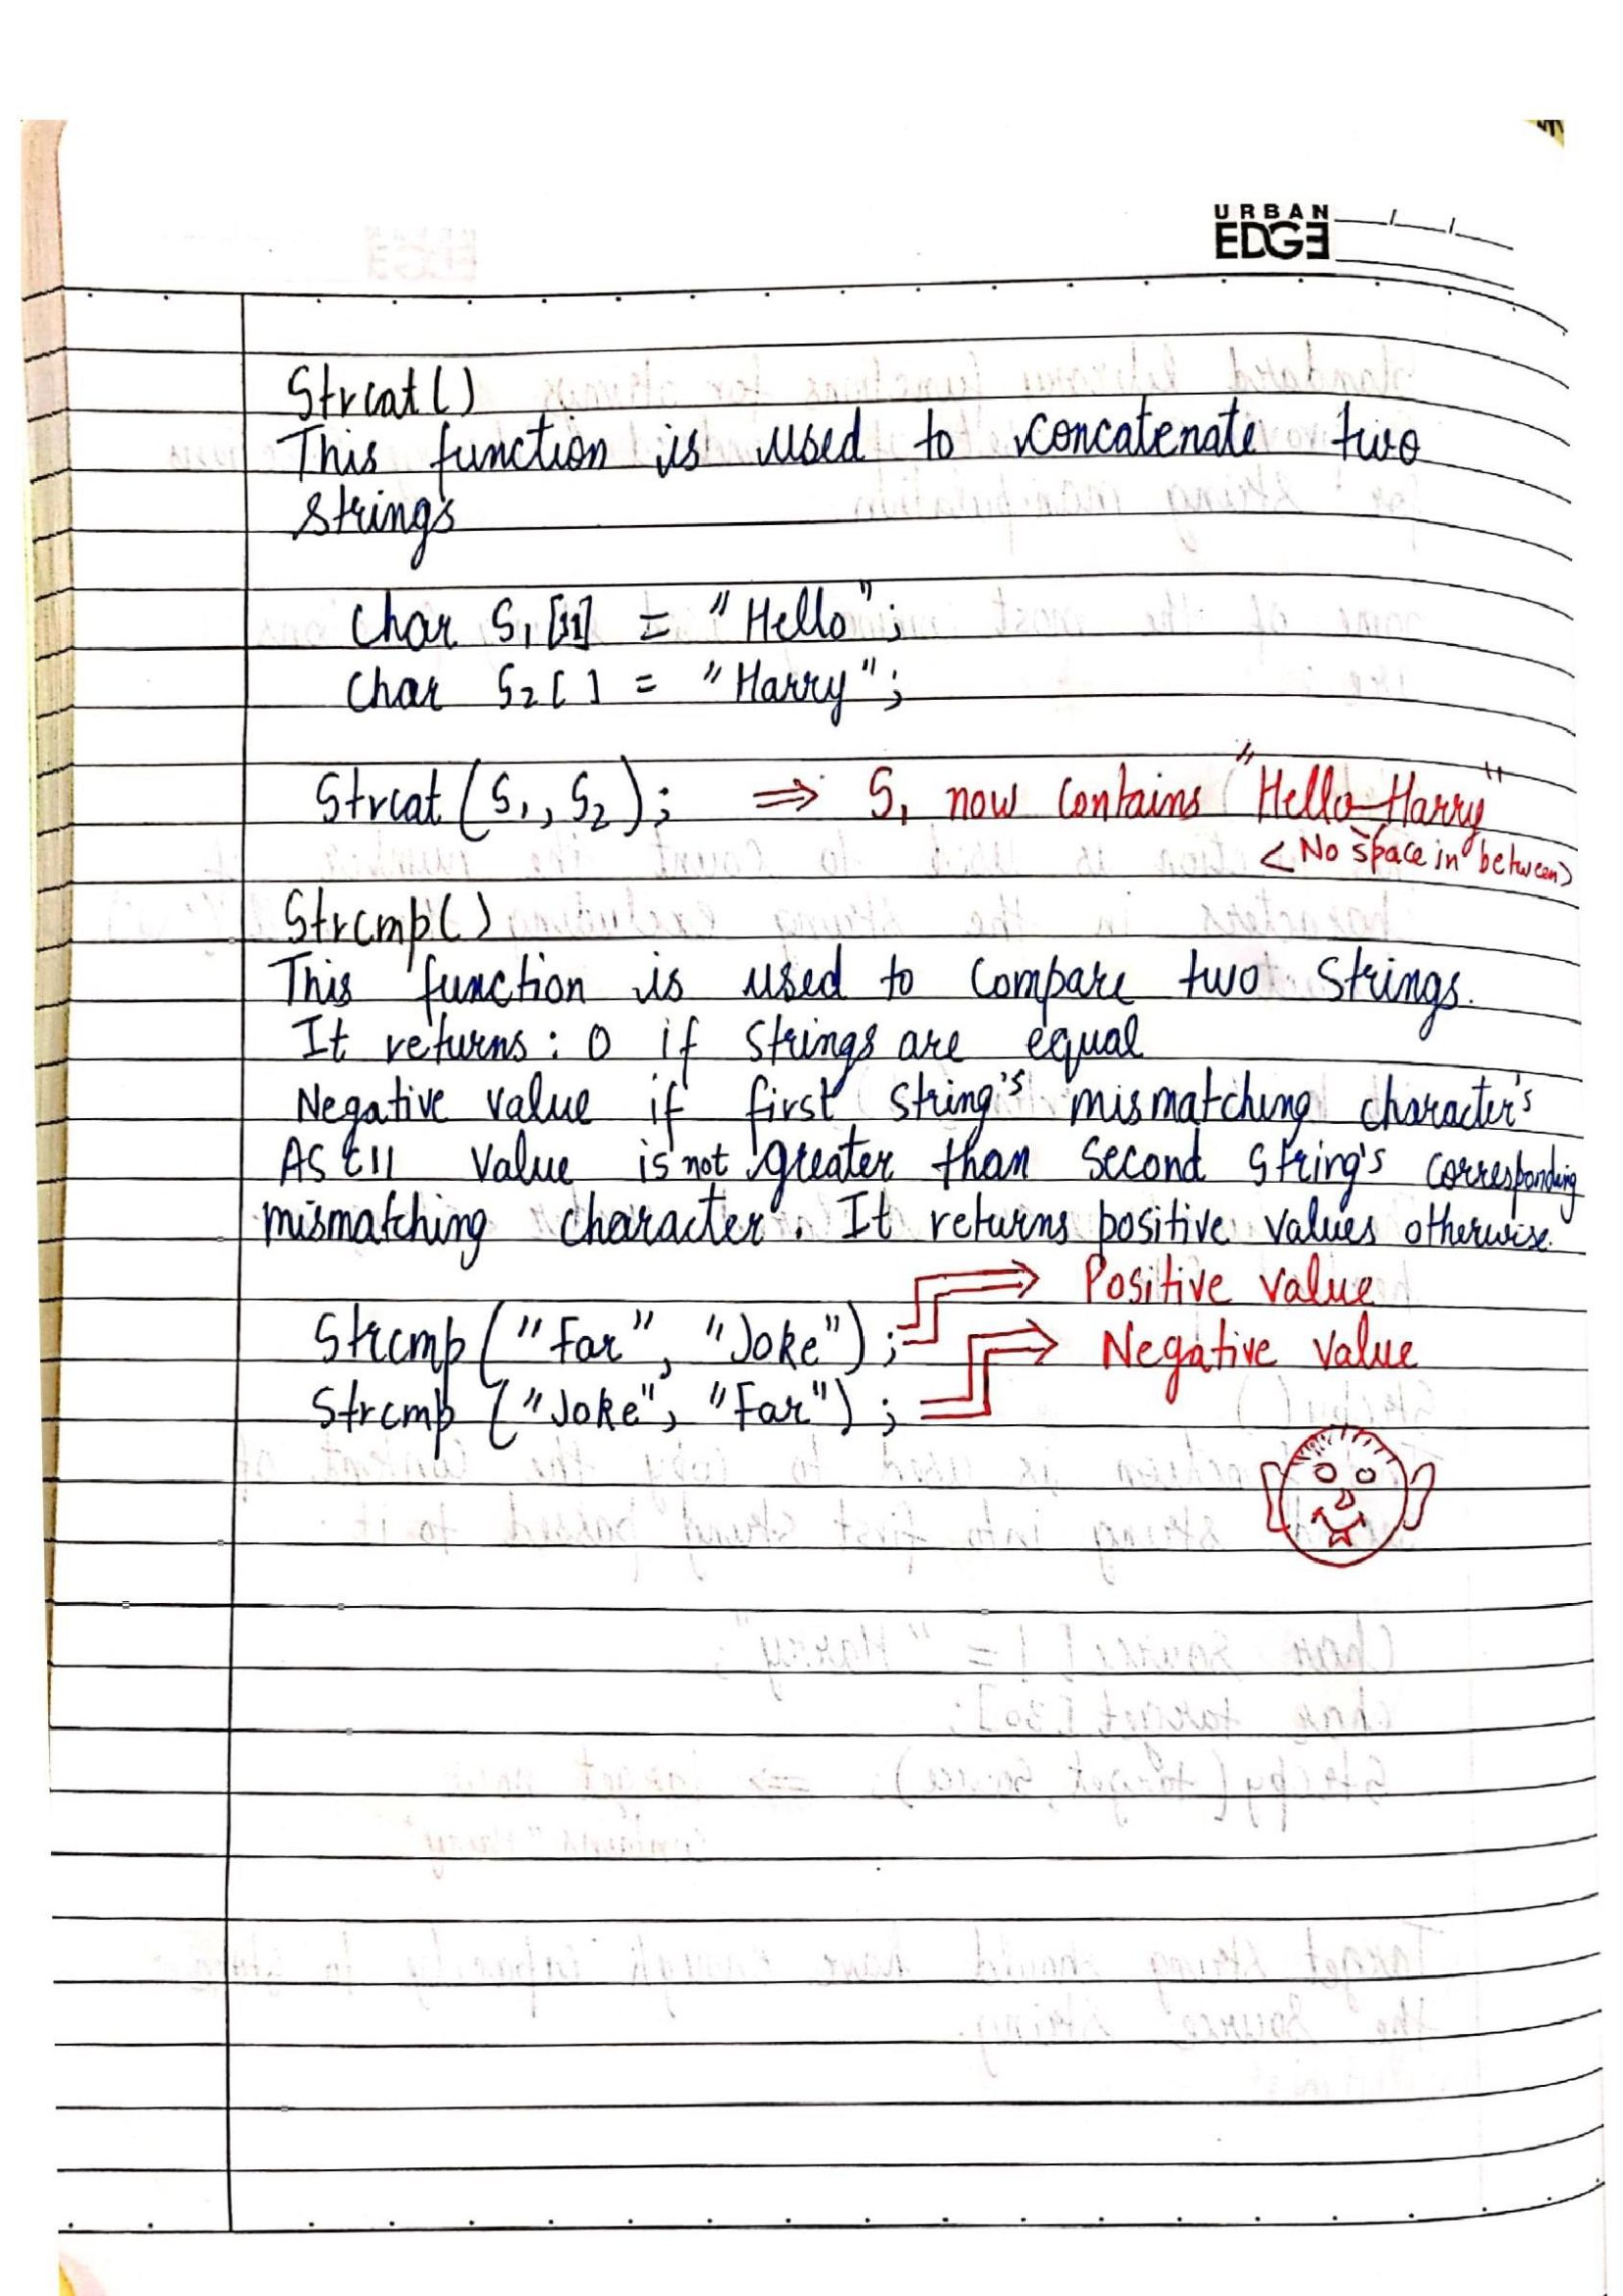 URBAN
EDGE
Strcat()
This function is used to concatenate two
strings
Char S1[11] = "Hello";
Char S2[] = "Harry";
Strcat(S1, S2); ⇒ S1 now contains "Hello Harry"
<No space in between>
Strcmp()
This function is used to compare two strings.
It returns: 0 if strings are equal
Negative value if first string's mismatching character's
ASCII value is not greater than second string's corresponding
mismatching character. It returns positive values otherwise.
Strcmp("Far", "Joke"); ⇒ Positive value
Strcmp("Joke", "Far"); ⇒ Negative value